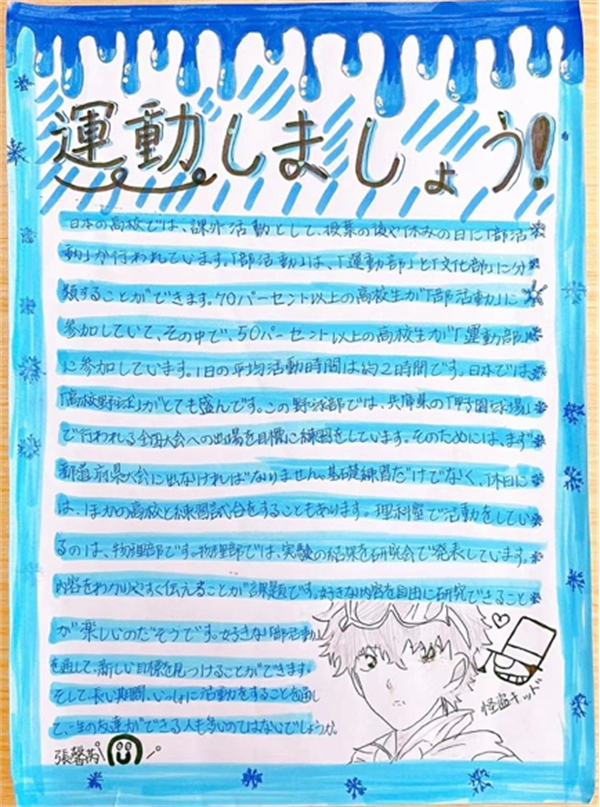 運動しましょう!
日本の高校では、課外活動として、授業の後や休みの日に「部活
動」が行われています。「部活動」は、「運動部」と「文化部」に分
類することができます。70パーセント以上の高校生が「部活動」に
参加していて、その中で、50パーセント以上の高校生が「運動部」
に参加しています。1日の平均活動時間は約2時間です。日本では、
「高校野球」がとても盛んです。この野球部では、兵庫県の「甲子園球場」
で行われる全国大会への出場を目標に練習をしています。そのためには、まず
都道府県大会に出なければなりません。基礎練習だけでなく、休日に
は、ほかの高校と練習試合をすることもあります。理科室で活動をしてい
るのは、物理部です。物理部では、実験の結果を研究会で発表しています。
内容をわかりやすく伝えることが課題です。好きな内容を自由に研究できること
が楽しいのだそうです。好きな「部活動」
を通して、新しい目標を見つけることができます。
そして長い期間、いっしょに活動をすることを通し
て、一生の友達ができる人も多いのではないでしょうか。
怪盗キッド
張馨